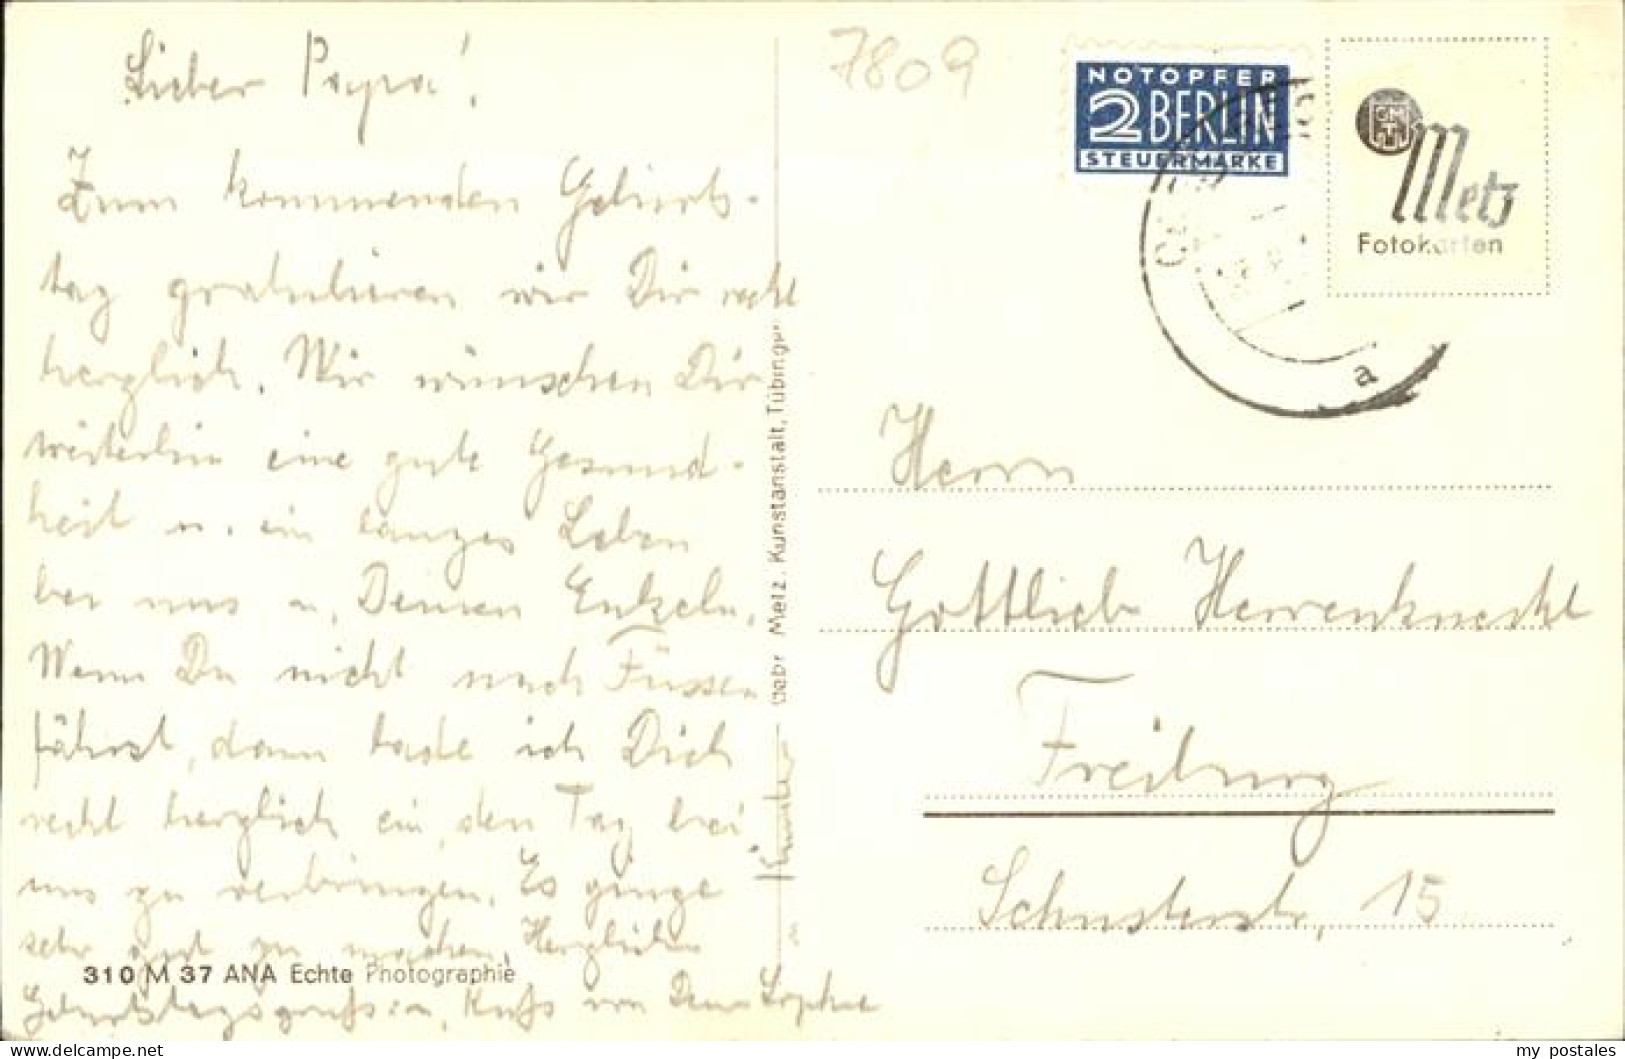 Lieber Papa!
Zum kommenden Geburts-
tag gratulieren wir Dir recht
herzlich. Wir wünschen Dir
weiterhin eine gute Gesund-
heit u. ein langes Leben
bei uns u. Deinen Enkeln.
Wenn Du nicht nach Füssen
fährst, dann lade ich Dich
recht herzlich ein, den Tag bei
uns zu verbringen. Es ginge
sehr gut zu machen. Herzlichen
Geburtstagsgruß u. Kuß von Deiner Sophie
310 M 37 ANA Echte Photographie
Gebr. Metz, Kunstanstalt, Tübingen
7809
NOTOPFER
2 BERLIN
STEUERMARKE
a
Metz
Fotokarten
Herrn
Gottlieb Herrenknecht
Freiburg
Schusterstr. 15
my postales